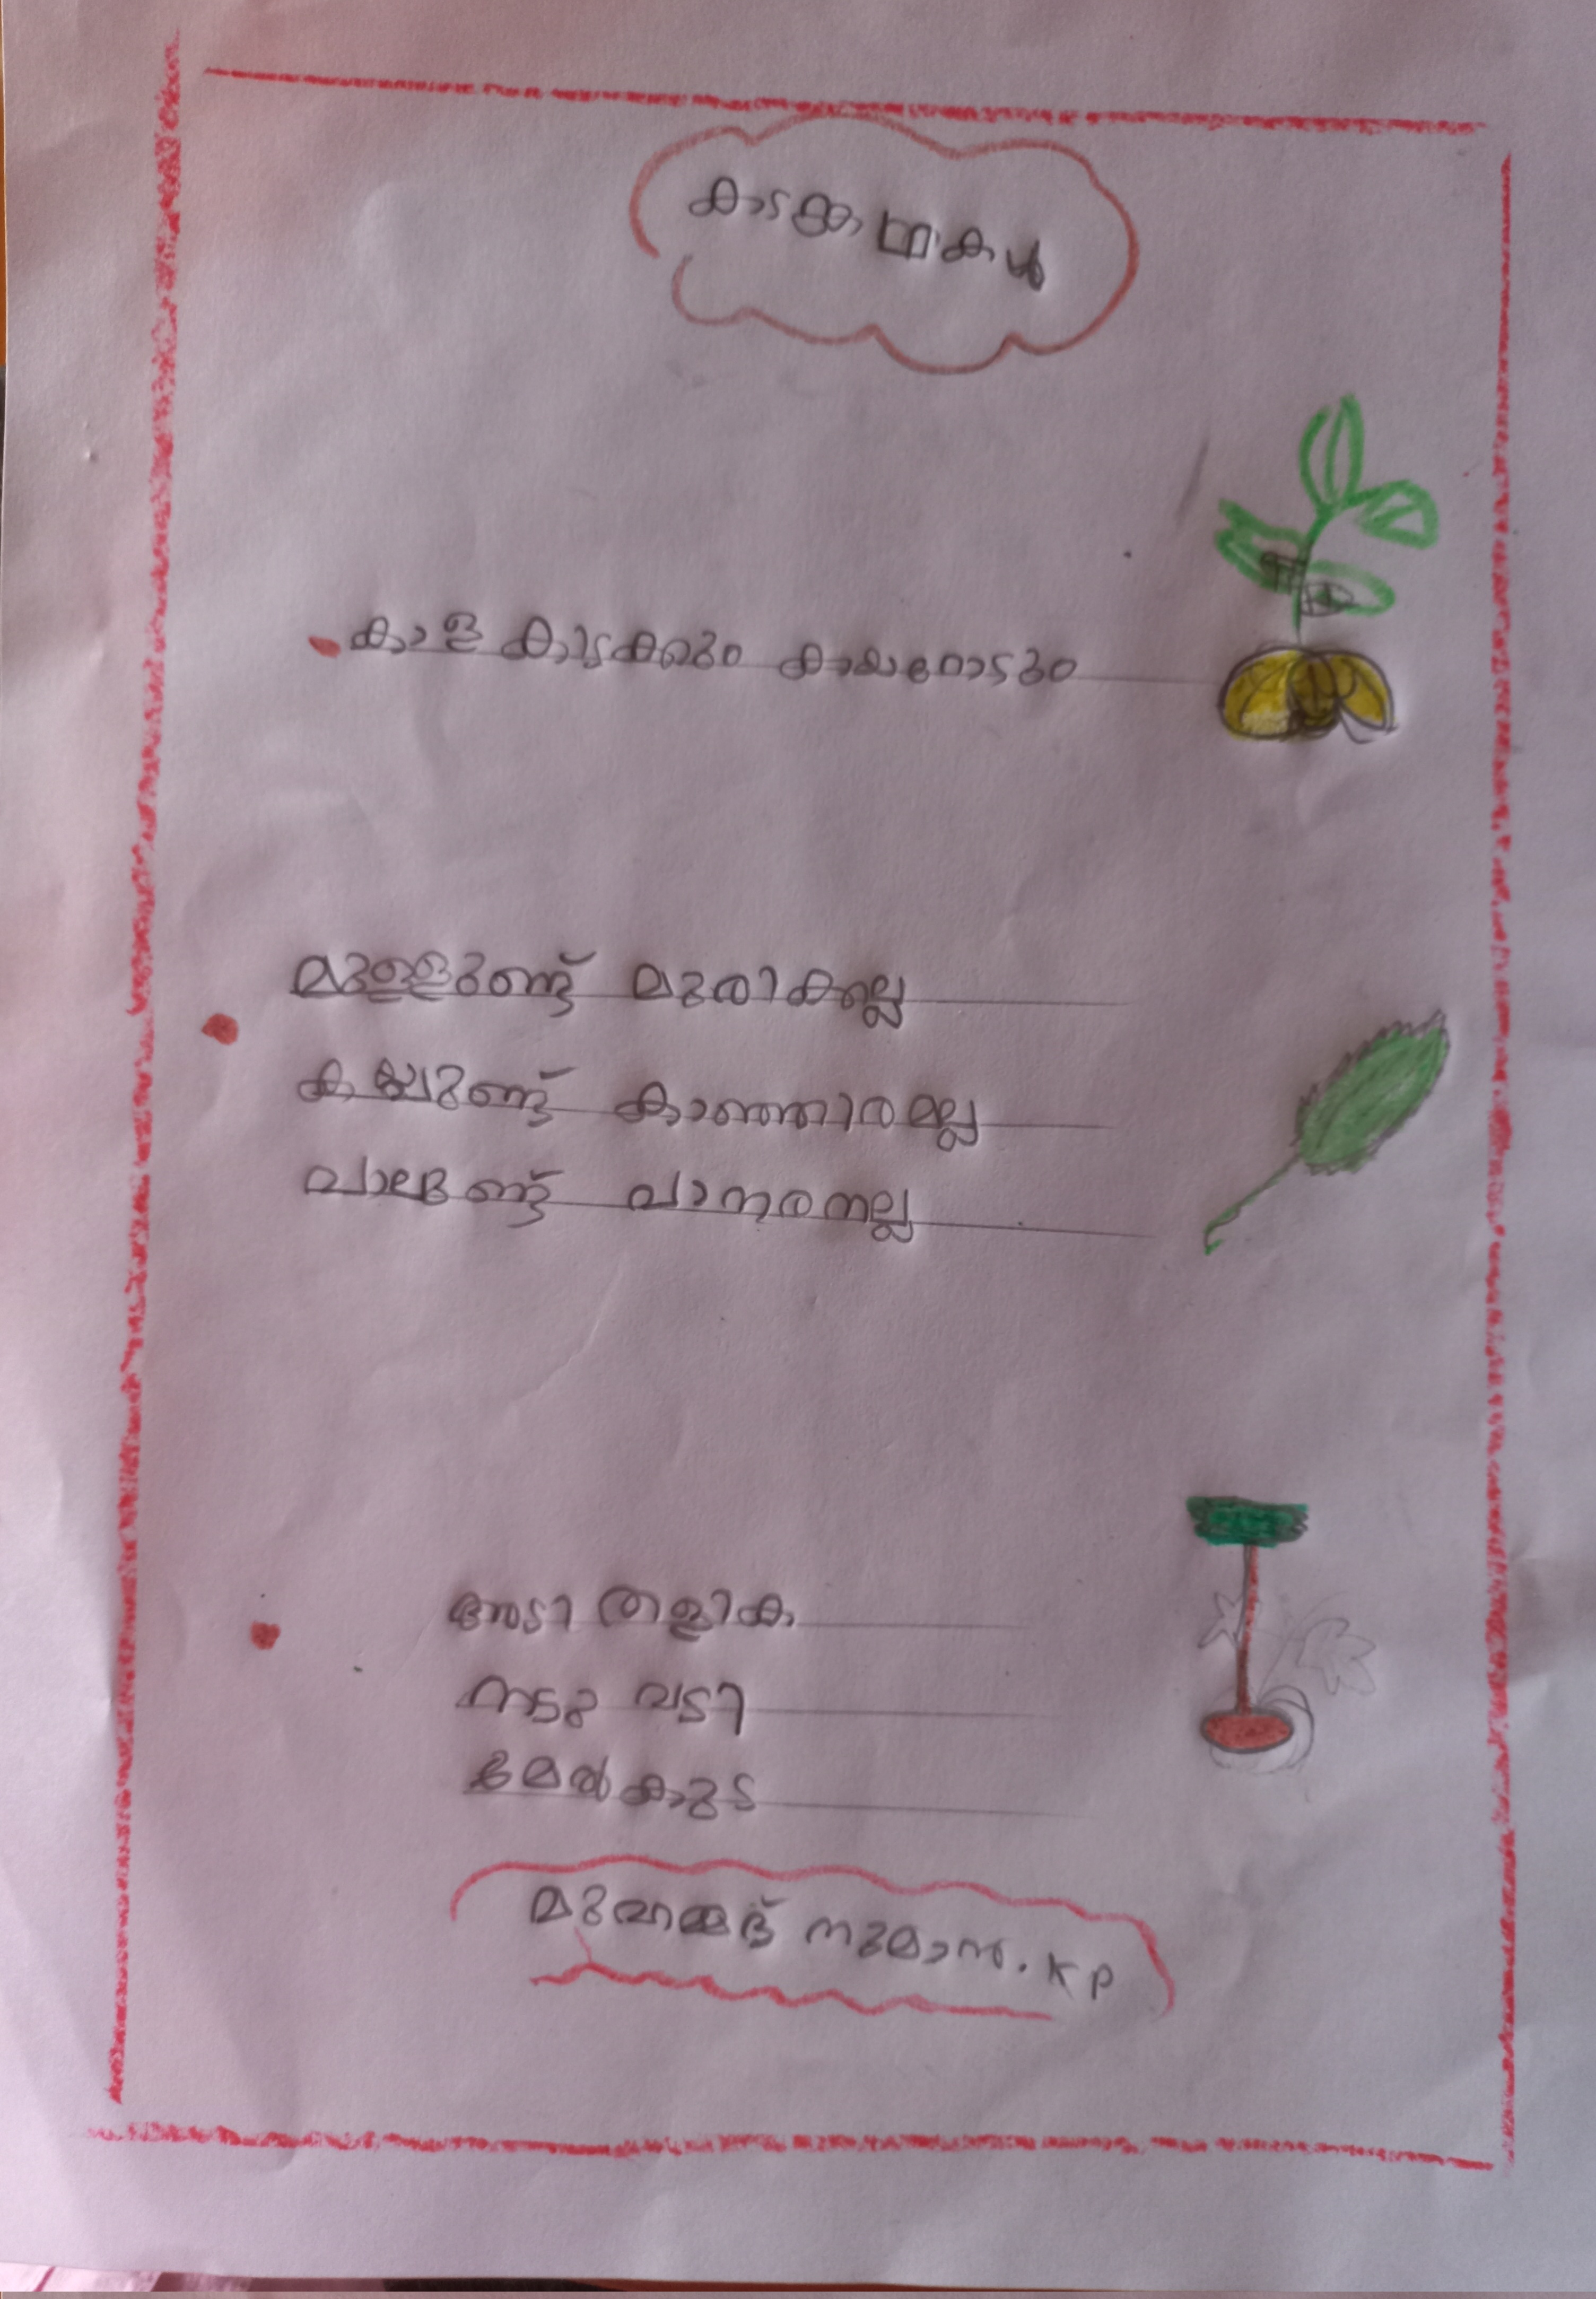 കടങ്കഥകൾ
കാള കിടക്കും കയറോടും
മുള്ളുണ്ട് മുരിക്കല്ല
കയ്പുണ്ട് കാഞ്ഞിരമല്ല
വാലുണ്ട് വാനരനല്ല
അടി തളിക
നടു വടി
മേൽ കുട
മുഹമ്മദ് നുമാൻ. KP